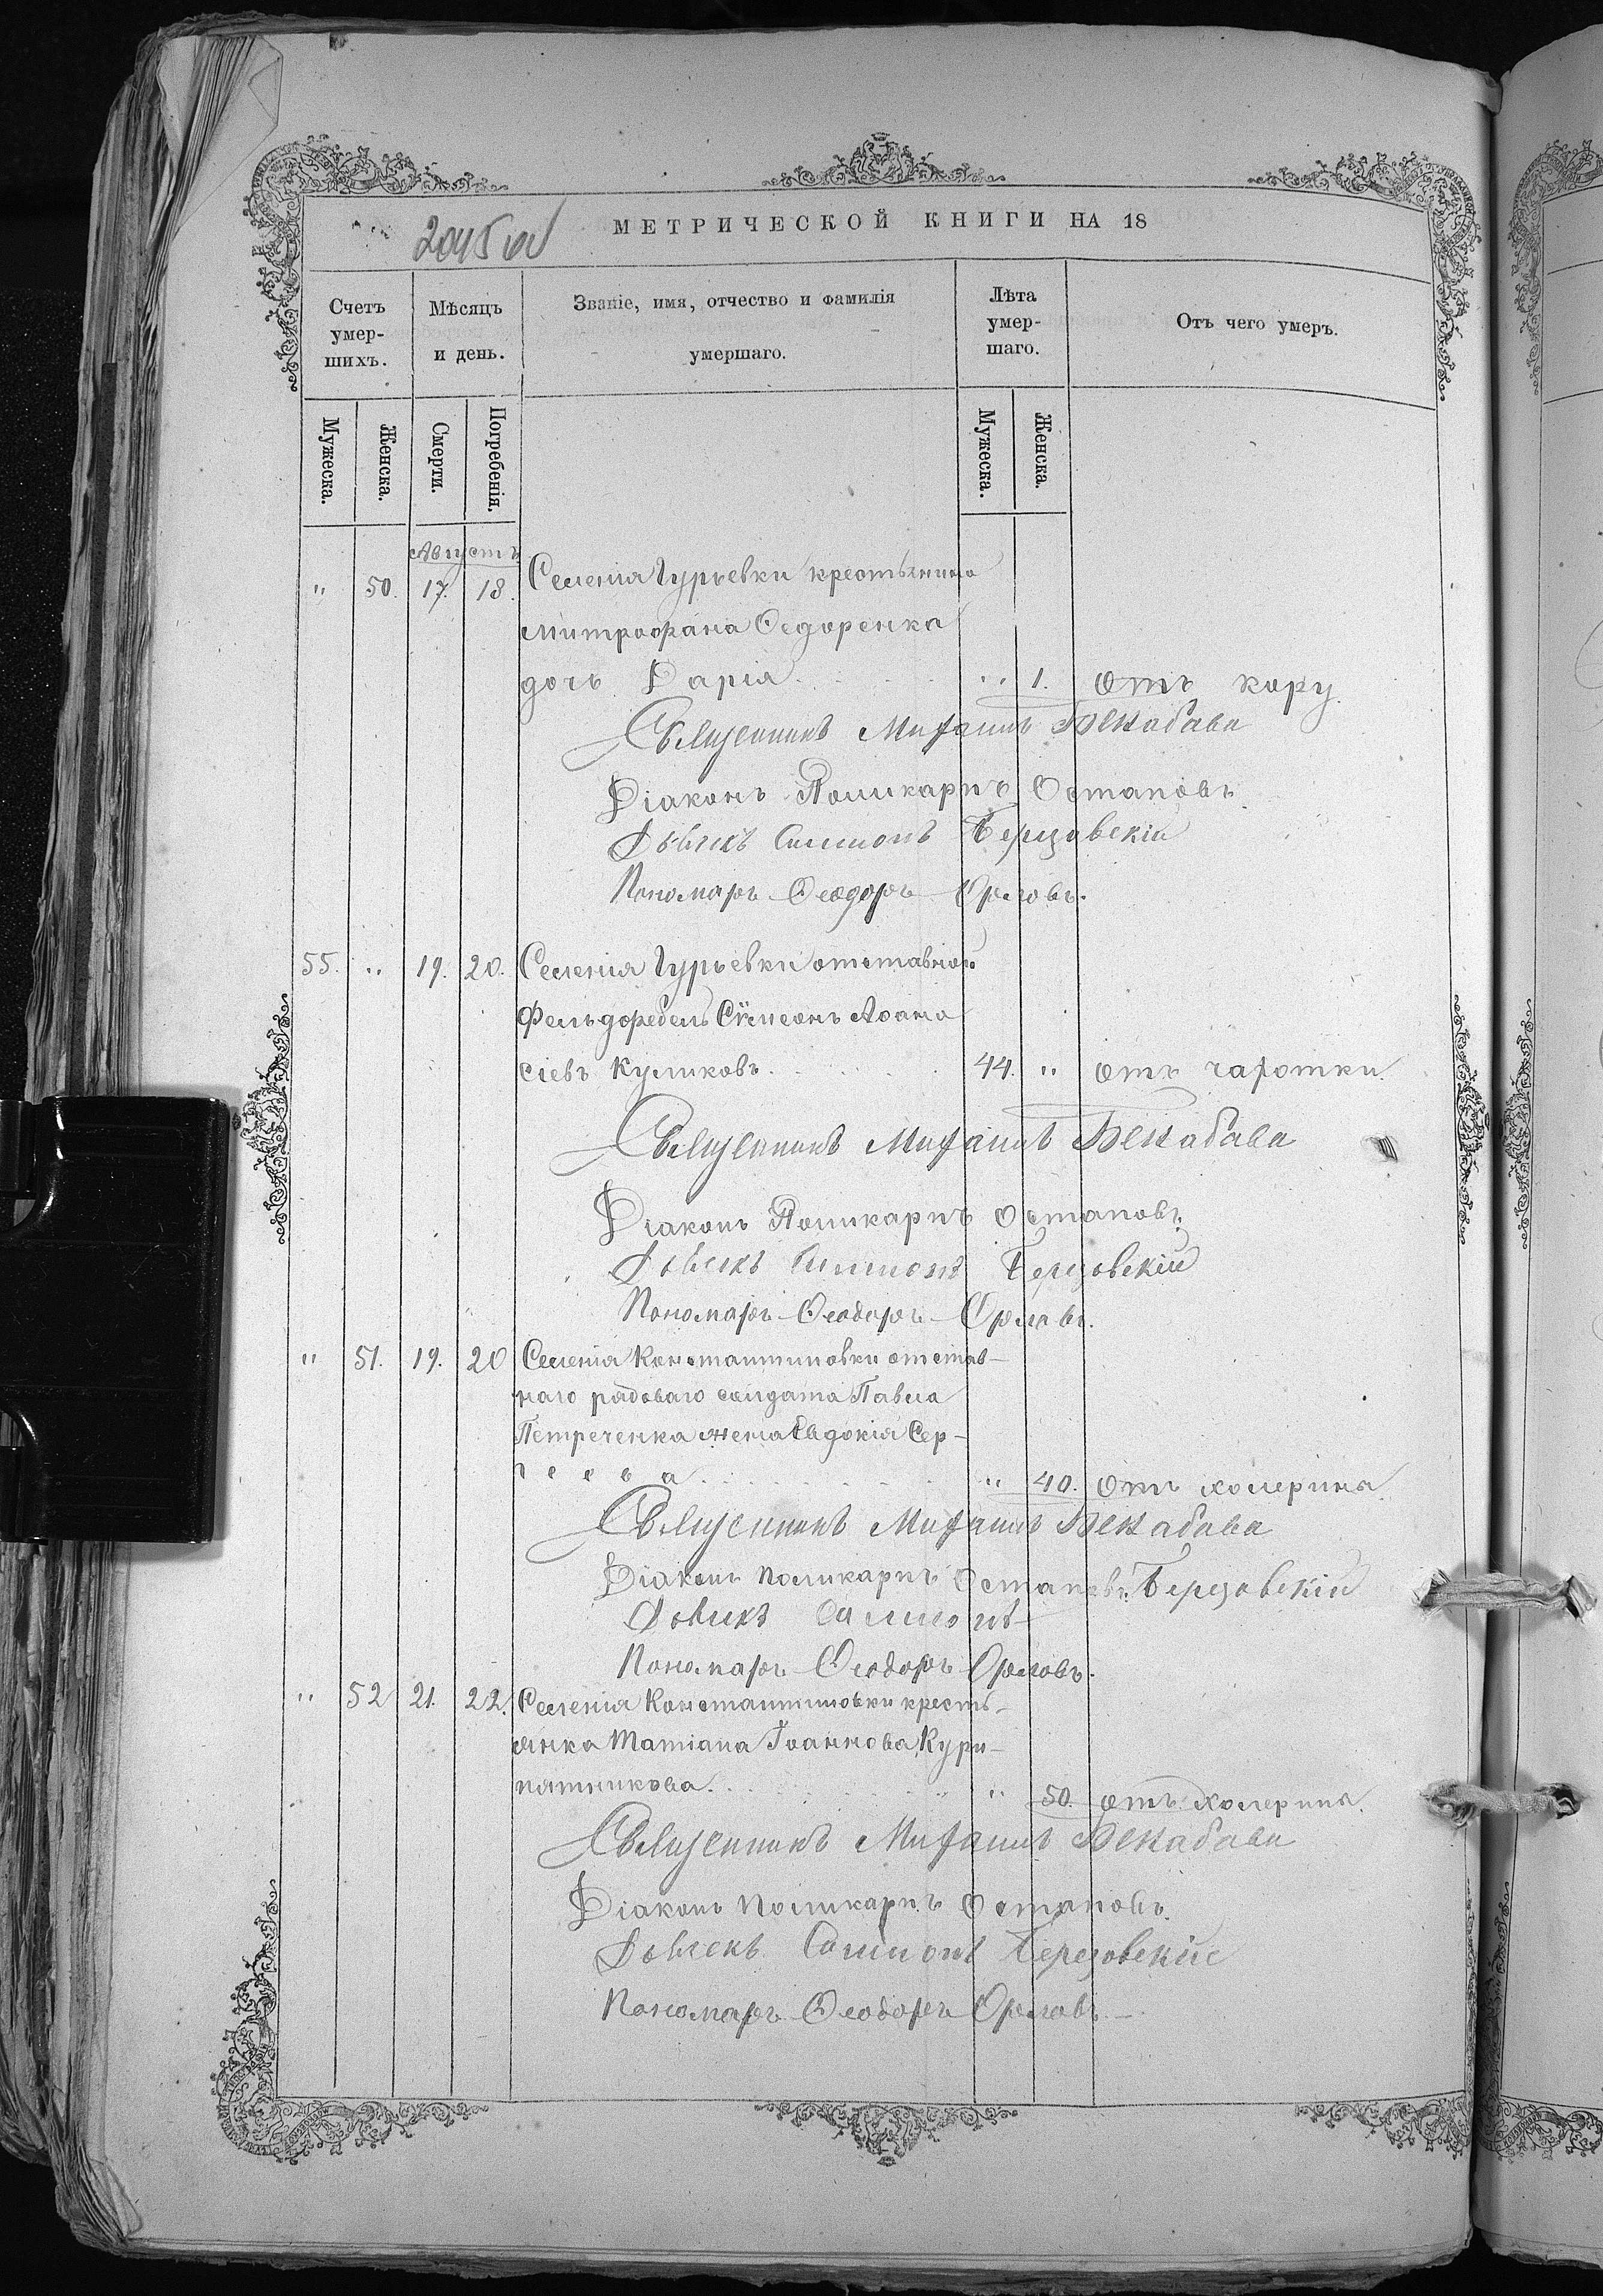 2045 об
МЕТРИЧЕСКОЙ КНИГИ НА 18
Счетъ умер-шихъ.
Мѣсяцъ и день.
Званіе, имя, отчество и фамилія умершаго.
Лѣта умер-шаго.
Отъ чего умеръ.
Мужеска. Женска. Смерти. Погребенія. Мужеска. Женска.
Августъ
" 50. 17. 18. Селенія Гурьевки крестьянина
Митрофана Ѳедоренка
дочь Дарія " 1. отъ кору.
Священникъ Михаилъ
Діаконъ Поликарпъ Остаповъ.
Дьячекъ Симеонъ Березовскій
Пономарь Ѳеодоръ Орловъ.
55. " 19. 20. Селенія Гурьевки отставной
Фельдфебель Сѵмеонъ Аѳана
сіевъ Куликовъ. 44. " отъ чахотки.
Священникъ Михаилъ
Діаконъ Поликарпъ Остаповъ.
Дьячекъ Симеонъ Березовскій
Пономарь Ѳеодоръ Орловъ.
" 51. 19. 20 Селенія Константиновки отстав-
наго рядоваго солдата Павла
Петреченка жена Евдокія Сер-
геева " 40. отъ холерина.
Священникъ Михаилъ
Діаконъ Поликарпъ Остаповъ. Березовскій
Дьячекъ Симеонъ
Пономарь Ѳеодоръ Орловъ.
" 52 21. 22. Селенія Константиновки кресть-
янка Татіана Іоаннова Кури-
пятникова. " 50. отъ холерина.
Священникъ Михаилъ
Діаконъ Поликарпъ Остаповъ.
Дьячекъ Симеонъ Березовскій
Пономарь Ѳеодоръ Орловъ.